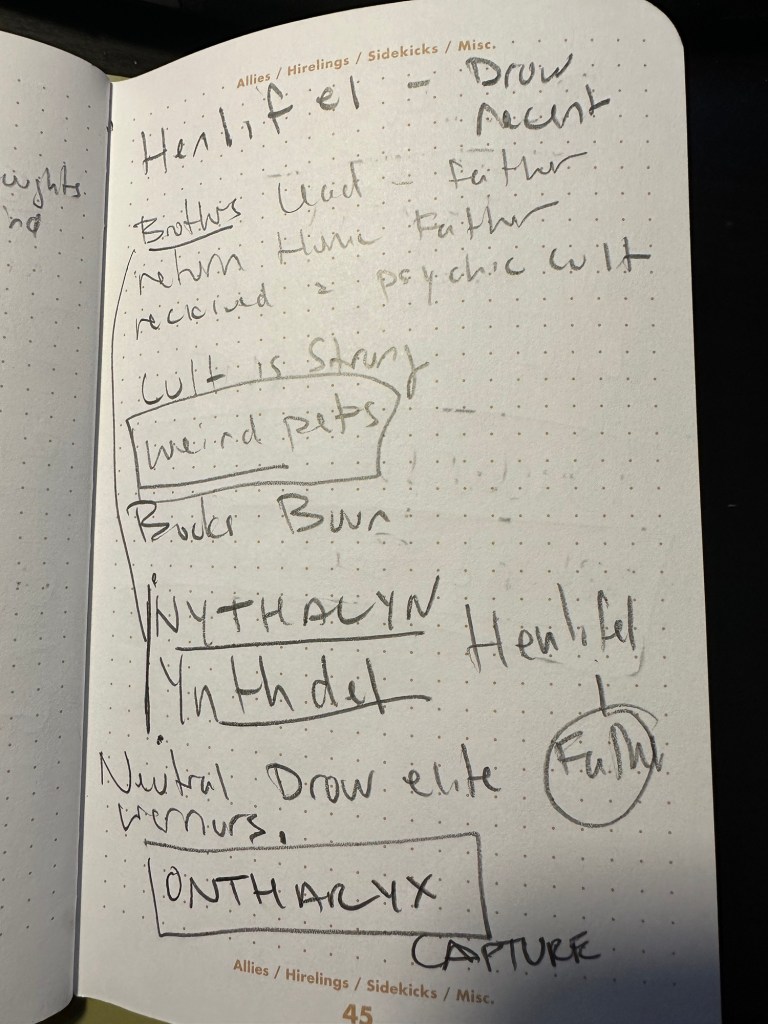 Allies / Hirelings / Sidekicks / Misc.
Henlifel - Drow
recent
Brothers Lead - Father
return Home Father
recieved a psychic cult
Cult is Strong
weird pets
Books Burn
NYTHALYN
Ynthdel
Henlifel
Father
Neutral Drow elite
warriors.
ONTHARYX
CAPTURE
Allies / Hirelings / Sidekicks / Misc.
45